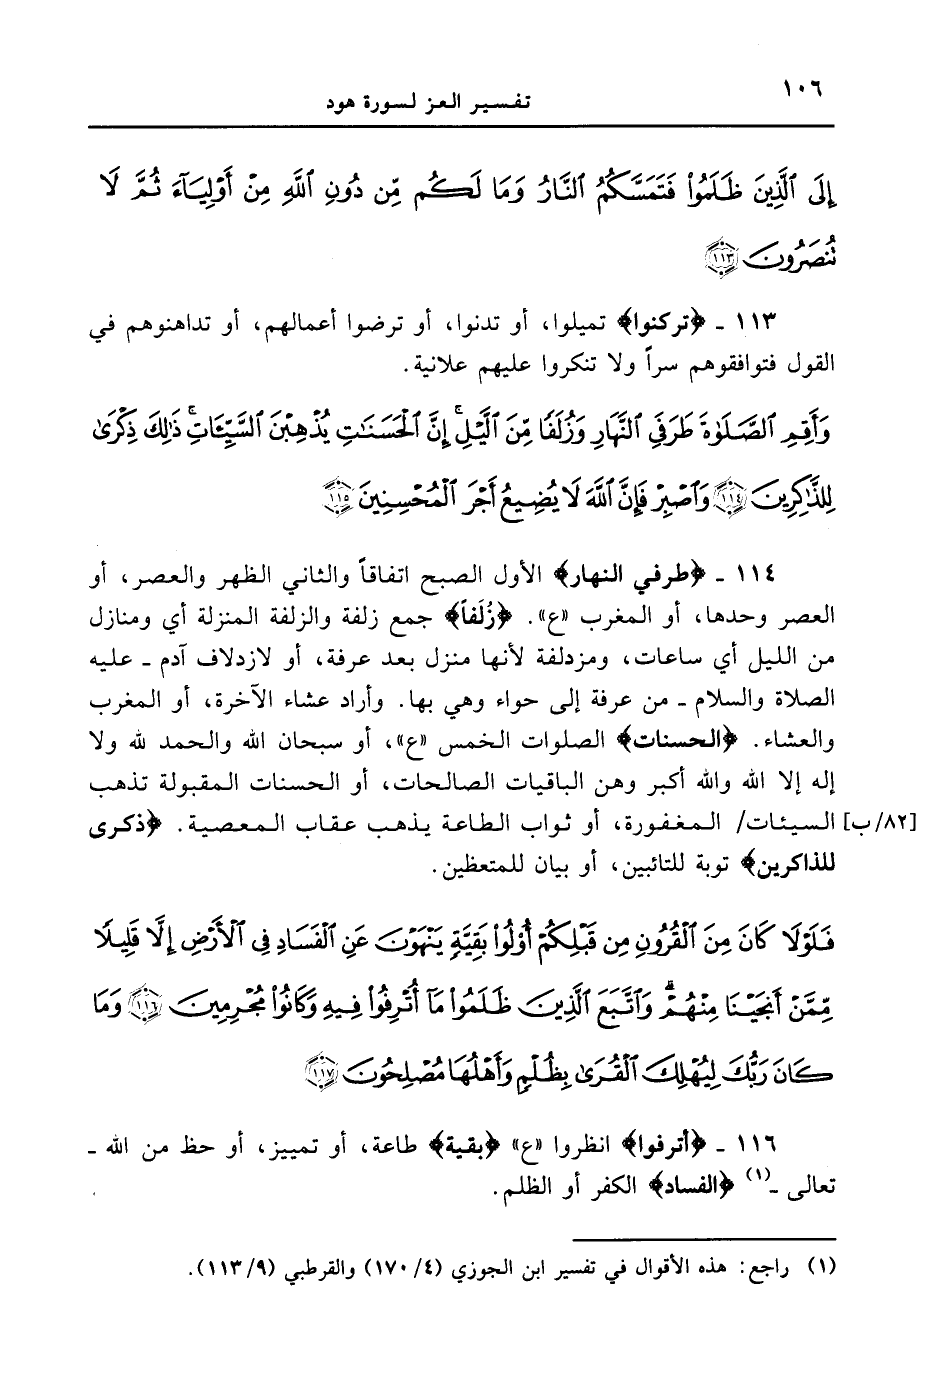 ١٠٦
تفسير العز لسورة هود
إِلَى ٱلَّذِينَ ظَلَمُوا۟ فَتَمَسَّكُمُ ٱلنَّارُ وَمَا لَكُم مِّن دُونِ ٱللَّهِ مِنْ أَوْلِيَآءَ ثُمَّ لَا
تُنصَرُونَ ١١٣
١١٣ ـ ﴿تركنوا﴾ تميلوا، أو تدنوا، أو ترضوا أعمالهم، أو تداهنوهم في
القول فتوافقوهم سراً ولا تنكروا عليهم علانية.
وَأَقِمِ ٱلصَّلَوٰةَ طَرَفَىِ ٱلنَّهَارِ وَزُلَفًا مِّنَ ٱلَّيْلِ ۚ إِنَّ ٱلْحَسَنَٰتِ يُذْهِبْنَ ٱلسَّيِّـَٔاتِ ۚ ذَٰلِكَ ذِكْرَىٰ
لِلذَّٰكِرِينَ ١١٤ وَٱصْبِرْ فَإِنَّ ٱللَّهَ لَا يُضِيعُ أَجْرَ ٱلْمُحْسِنِينَ ١١٥
١١٤ ـ ﴿طرفي النهار﴾ الأول الصبح اتفاقاً والثاني الظهر والعصر، أو
العصر وحدها، أو المغرب «ع». ﴿زُلَفاً﴾ جمع زلفة والزلفة المنزلة أي ومنازل
من الليل أي ساعات، ومزدلفة لأنها منزل بعد عرفة، أو لازدلاف آدم ـ عليه
الصلاة والسلام ـ من عرفة إلى حواء وهي بها. وأراد عشاء الآخرة، أو المغرب
والعشاء. ﴿الحسنات﴾ الصلوات الخمس «ع»، أو سبحان الله والحمد لله ولا
إله إلا الله والله أكبر وهن الباقيات الصالحات، أو الحسنات المقبولة تذهب
[٨٢/ب] السيئات/ المغفورة، أو ثواب الطاعة يذهب عقاب المعصية. ﴿ذكرى
للذاكرين﴾ توبة للتائبين، أو بيان للمتعظين.
فَلَوْلَا كَانَ مِنَ ٱلْقُرُونِ مِن قَبْلِكُمْ أُو۟لُوا۟ بَقِيَّةٍ يَنْهَوْنَ عَنِ ٱلْفَسَادِ فِى ٱلْأَرْضِ إِلَّا قَلِيلًا
مِّمَّنْ أَنجَيْنَا مِنْهُمْ ۗ وَٱتَّبَعَ ٱلَّذِينَ ظَلَمُوا۟ مَآ أُتْرِفُوا۟ فِيهِ وَكَانُوا۟ مُجْرِمِينَ ١١٦ وَمَا
كَانَ رَبُّكَ لِيُهْلِكَ ٱلْقُرَىٰ بِظُلْمٍ وَأَهْلُهَا مُصْلِحُونَ ١١٧
١١٦ ـ ﴿أترفوا﴾ انظروا «ع» ﴿بقية﴾ طاعة، أو تمييز، أو حظ من الله ـ
تعالى ـ(١) ﴿الفساد﴾ الكفر أو الظلم.
(١) راجع: هذه الأقوال في تفسير ابن الجوزي (٤/ ١٧٠) والقرطبي (٩/ ١١٣).